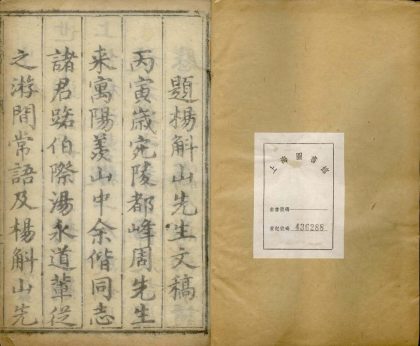 題楊斛山先生文稿
丙寅歲宛陵都峰周先生
来寓陽羨山中余偕同志
諸君踞伯際湯永道輩從
之游間常語及楊斛山先
上海圖書館
索書號碼
登記號碼 436268